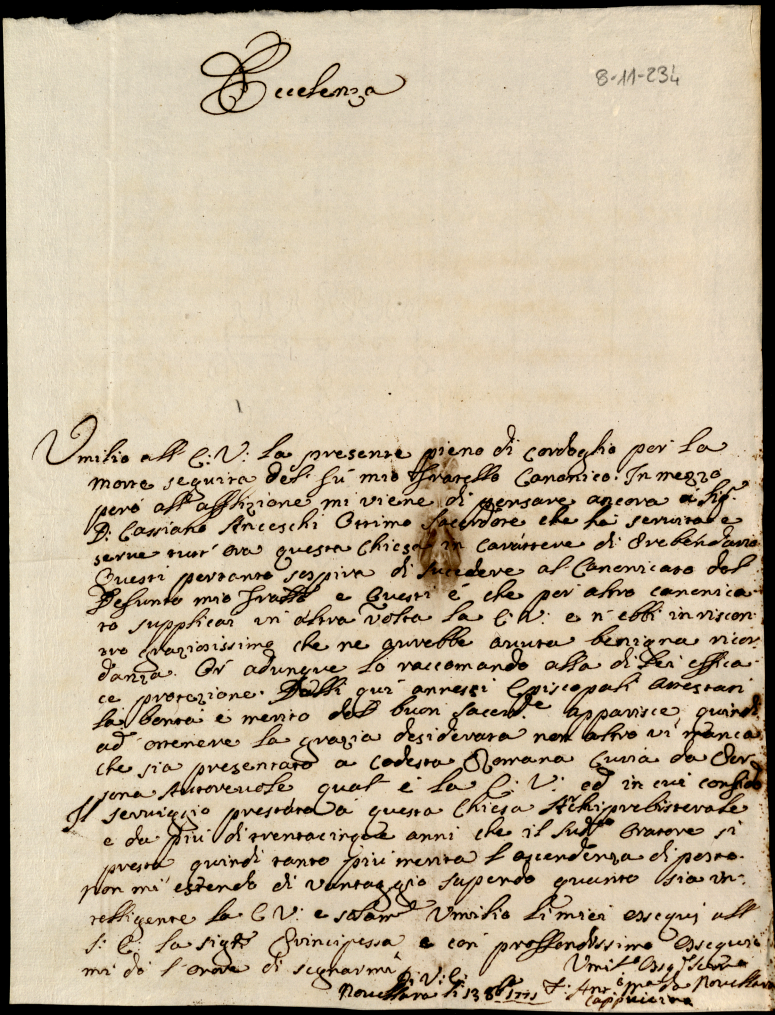 Eccelenza
8-11-234
Umilio all' E: V: la presente pieno di cordoglio per la
morte seguita del fù mio Fratello Canonico. In mezzo
però all'afflizione mi viene di pensare ancora a Sig.
D: Cassiano Anceschi Ottimo Sacerdote che ha servita e
serve tutt'ora questa Chiesa in carattere di Prebendario
Questi pertanto sospira di succedere al Canonicato del
Defunto mio Fratello e Questi è che per altro canonica
to supplicai un'altra volta la E: V: e n'ebbi in riscon
tro graziosissimo che ne avrebbe avuta benigna ricor
danza. Or adunque lo raccomando alla di Lei effica
ce protezione. Dalli quì annessi Episcopali attestati
la bontà e merito del buon Sacerde apparisce quindi
ad ottenere la grazia desiderata non altro vi manca
che sia presentato a codesta Romana Curia da Per
sona Autorevole qual è la E: V: ed in cui confido
Il servigio prestato a questa Chiesa Archipresbiterale
e da più di trentacinque anni che il sudto Oratore si
presta quindi tanto più merita l'ascendenza di posto.
non mi estendo di vantaggio sapendo quanto sia in-
telligente la E V: e solamte Umilio li miei ossequi all'
S: E: la sigra Principessa e con proffondissimo ossequio
mi do l'onore di segnarmi
Di V: E:
Novellara li 13 8bre 1771
Umilo Ossqo servo
F: Anto Ma da Novellara
Cappuccino